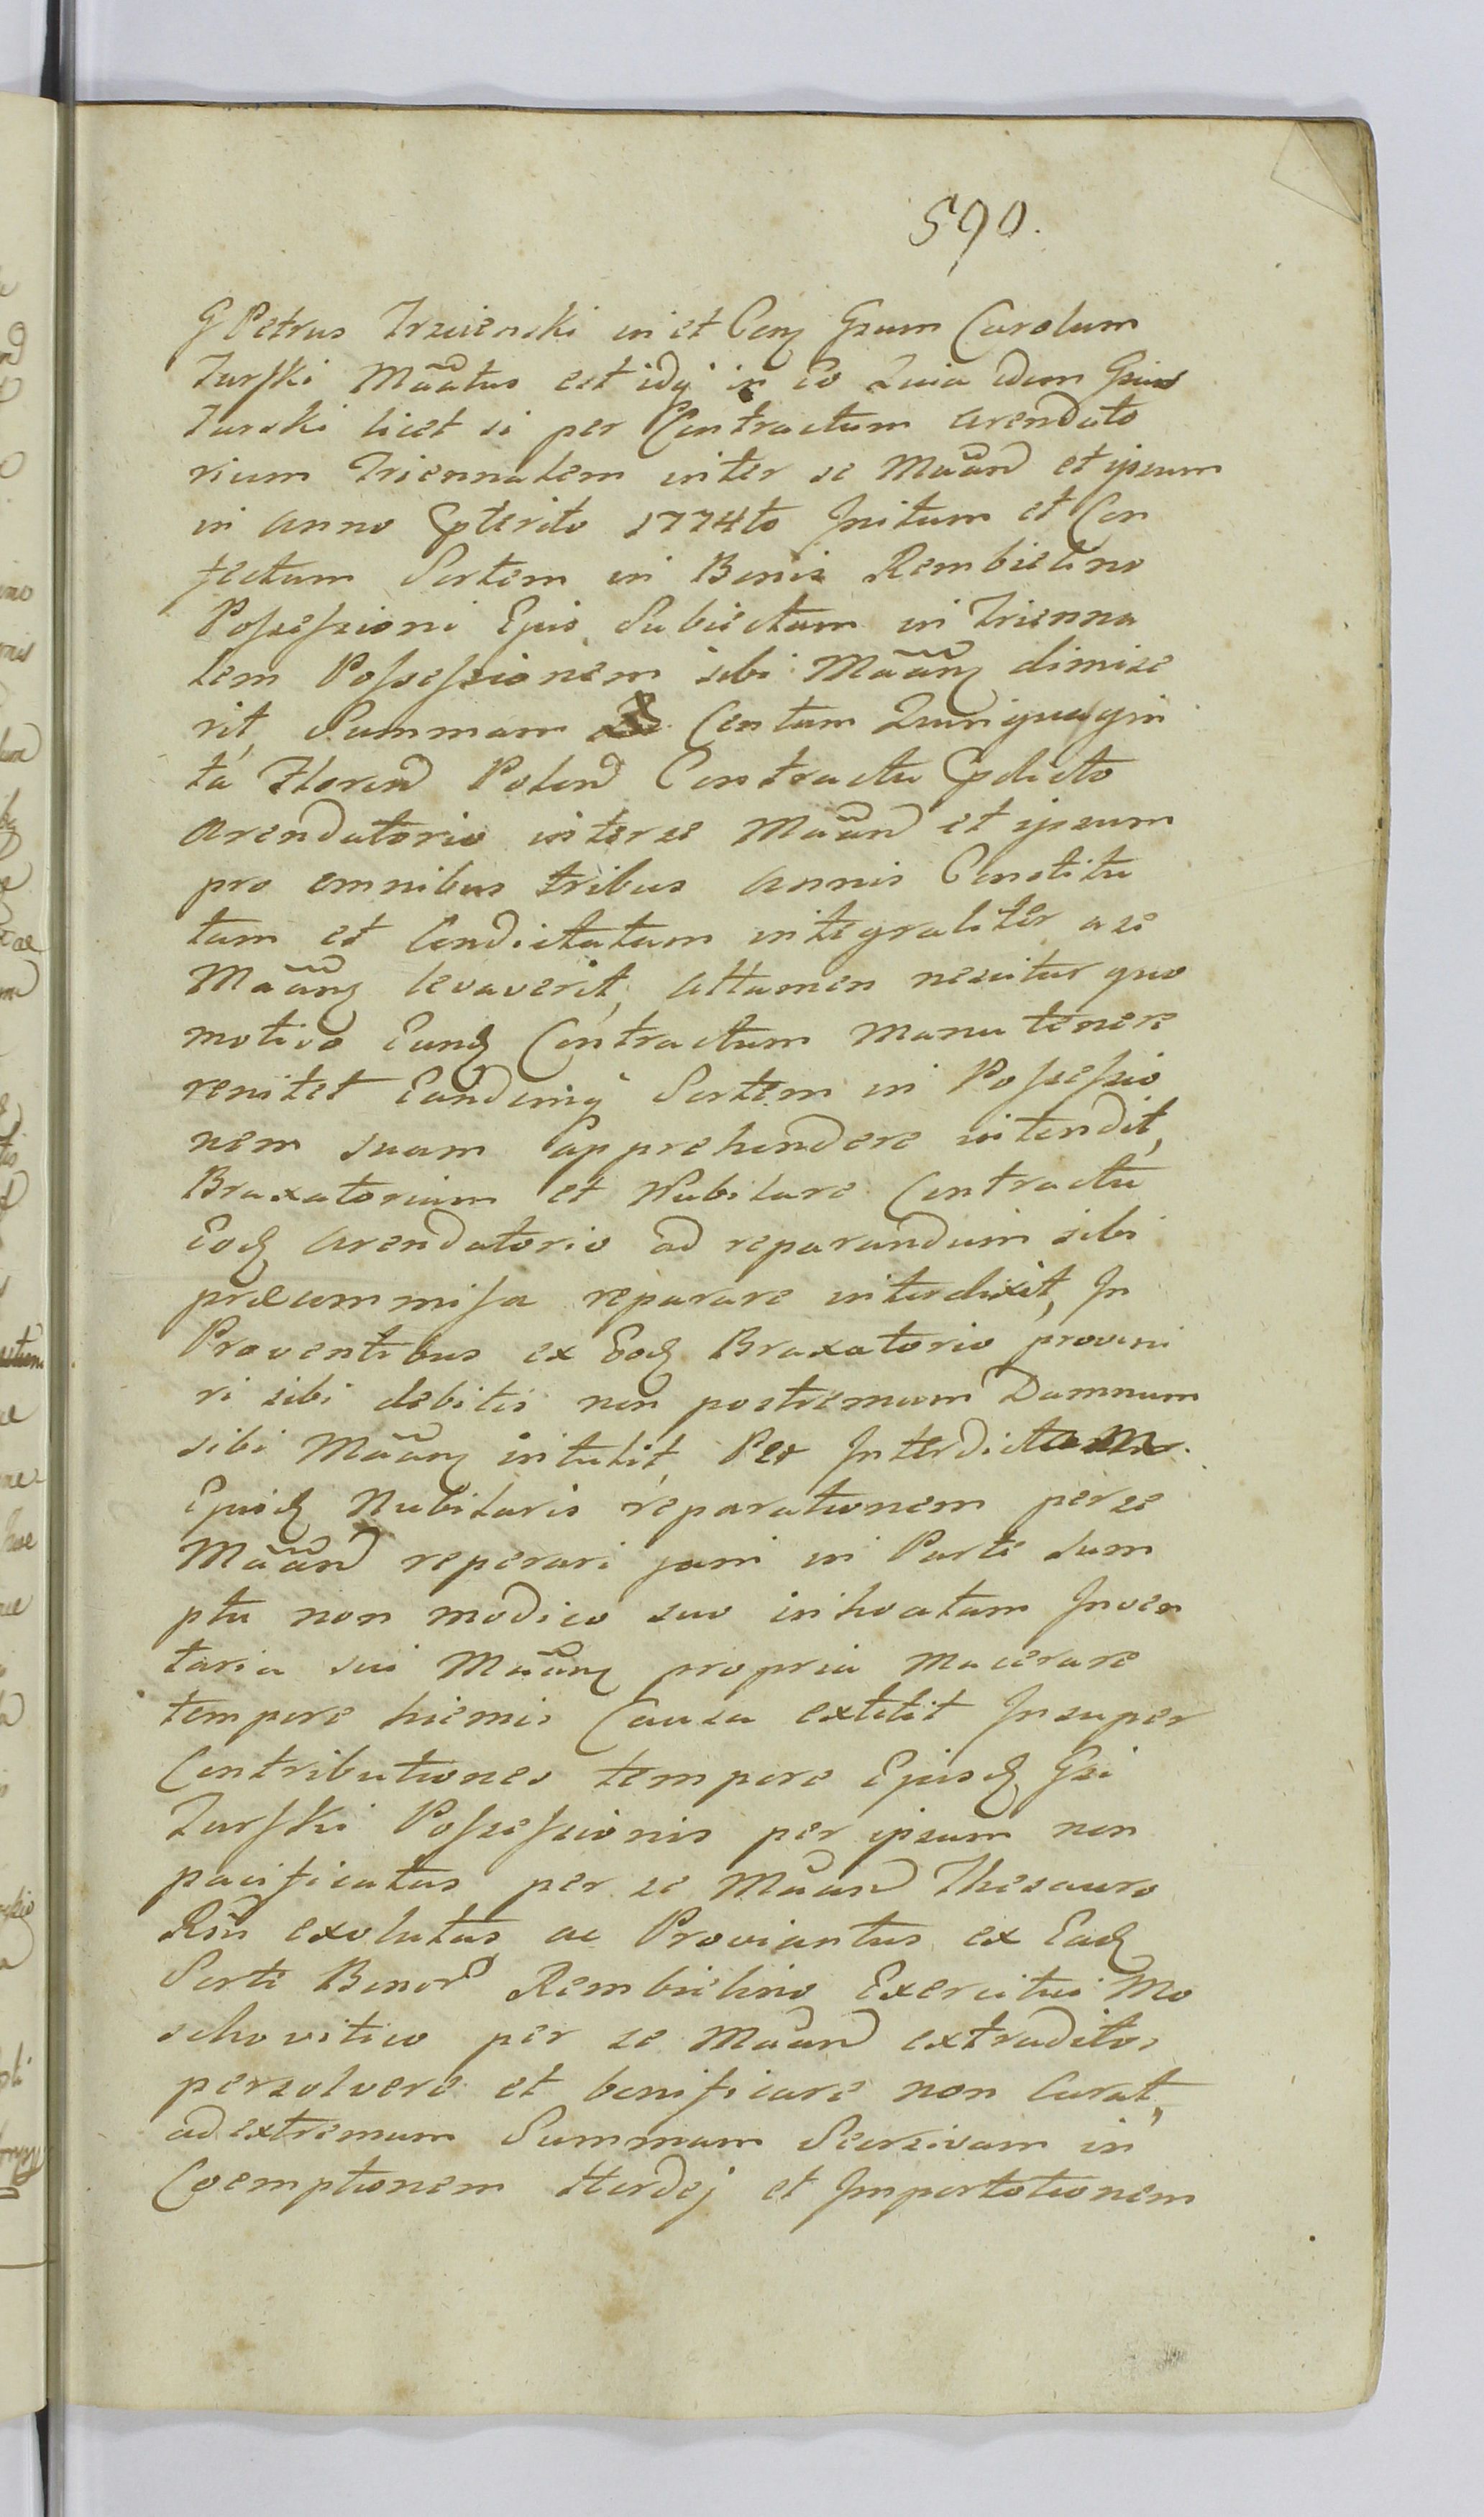 590.
G Petrus Trzcienski in et Conq Gsum Carolum
Turski Mãatus est idq in Eo Quia idem Gsus
Turski licet si per Contractum arendato
rium Triennalem inter se Mãan et ipsum
in anno Cpterito 1774to Initum et Con
fectum Sortem in Bonis Rembielino
Possessioni Ejus Subiectam in Trienna
lem Possessionem sibi Mãanq dimise
rit, Summam Centum Quinquagin
ta Floren Polon Contractu Cpdicto
arendatorio inter se Mãan et ipsum
pro omnibus tribus annis Constitu
tam et Condictatam integraliter a se
Mãanq levaverit, attamen nescitur quo
motivo Eunq Contractum manu tenere
renitet Eandemq Sortem in Possessio
nem suam apprehendere intendit,
Braxatorium et Nubilare Contractu
Eodq arendatorio ad reparandum sibi
præcommissa reparare interdixit, In
Proventibus ex Eodq Braxatorio proveni
ri sibi debitis non postremum Damnum
sibi Mãanq intulit, Per Interdictam
Ejusdq Nubilaris reparationem per se
Mãan reperari jam in Parte sum
ptu non modico suo inhoatam Inven
taria sui Mãanq propria macerare
tempore hiemis Causa extitit Insuper
Contributiones tempore Ejusdq Gsi
Turski Possessionis per ipsum non
pacificatas per se Mãan Thesauro
Rsii exolutas ac Proviantus ex Eadq
Sorte Bonor Rembielino Exercitui Mo
schovitico per se Mãan extraditos
persolvere et bonificare non Curat,
ad extremum Summam Seorsivam in
Coemptionem Hordej et Importationem